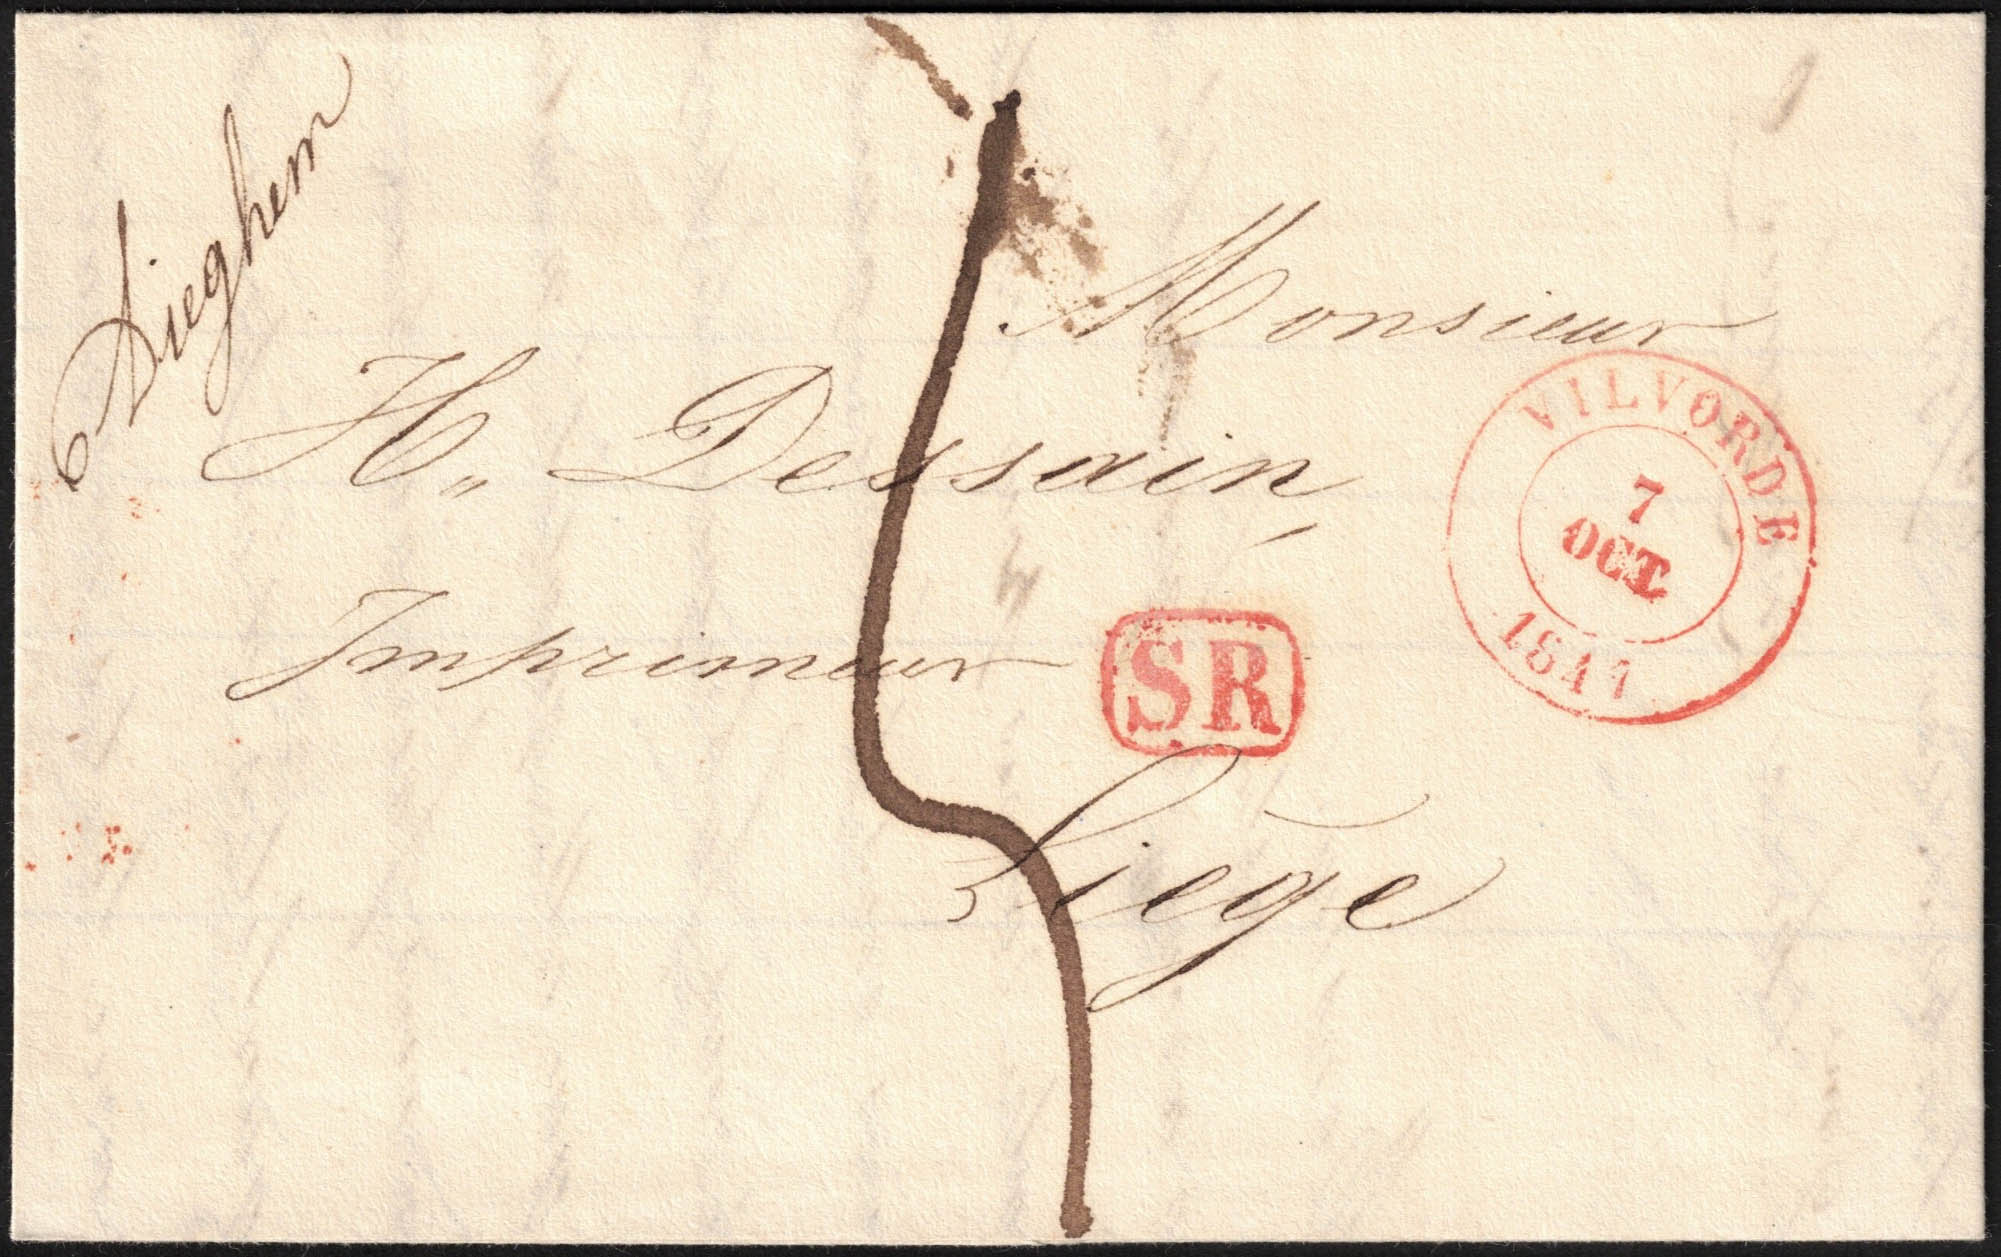 Sieghem
Monsieur
H„ Dessain,
Imprimeur
Liège
SR
VILVORDE
7
OCT.
1841
5